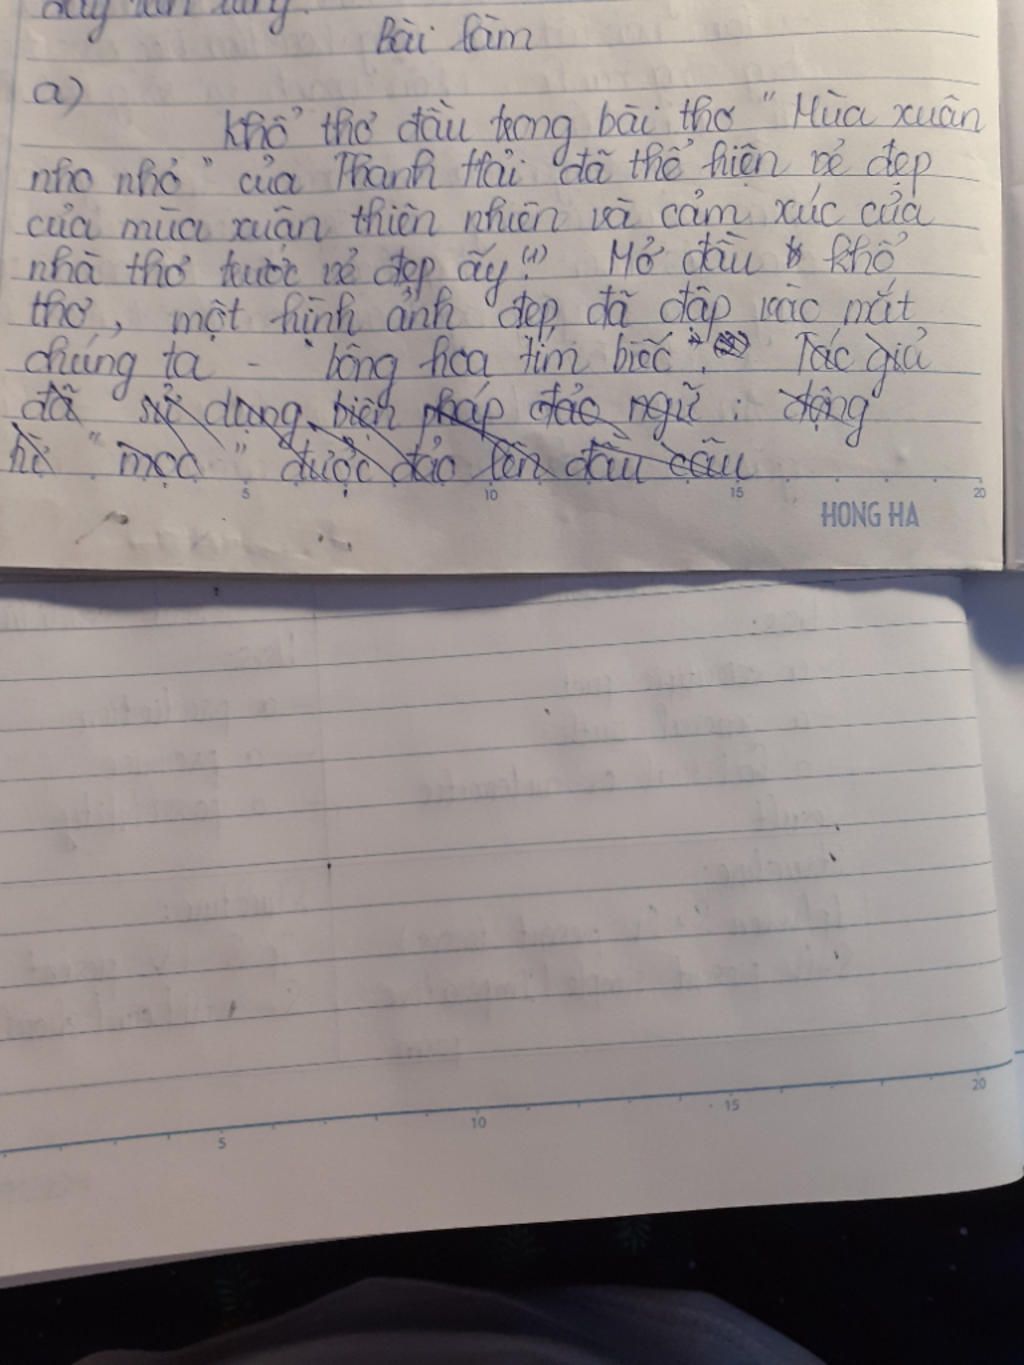 Bài làm
a)
Khổ thơ đầu trong bài thơ "Mùa xuân
nho nhỏ" của Thanh Hải đã thể hiện vẻ đẹp
của mùa xuân thiên nhiên và cảm xúc của
nhà thơ trước vẻ đẹp ấy.(1) Mở đầu khổ
thơ, một hình ảnh đẹp đã đập vào mắt
chúng ta - "bông hoa tím biếc". Tác giả
đã sử dụng biện pháp đảo ngữ: động
từ "mọc" được đảo lên đầu câu
5 10 15 20
HONG HA
5 10 15 20